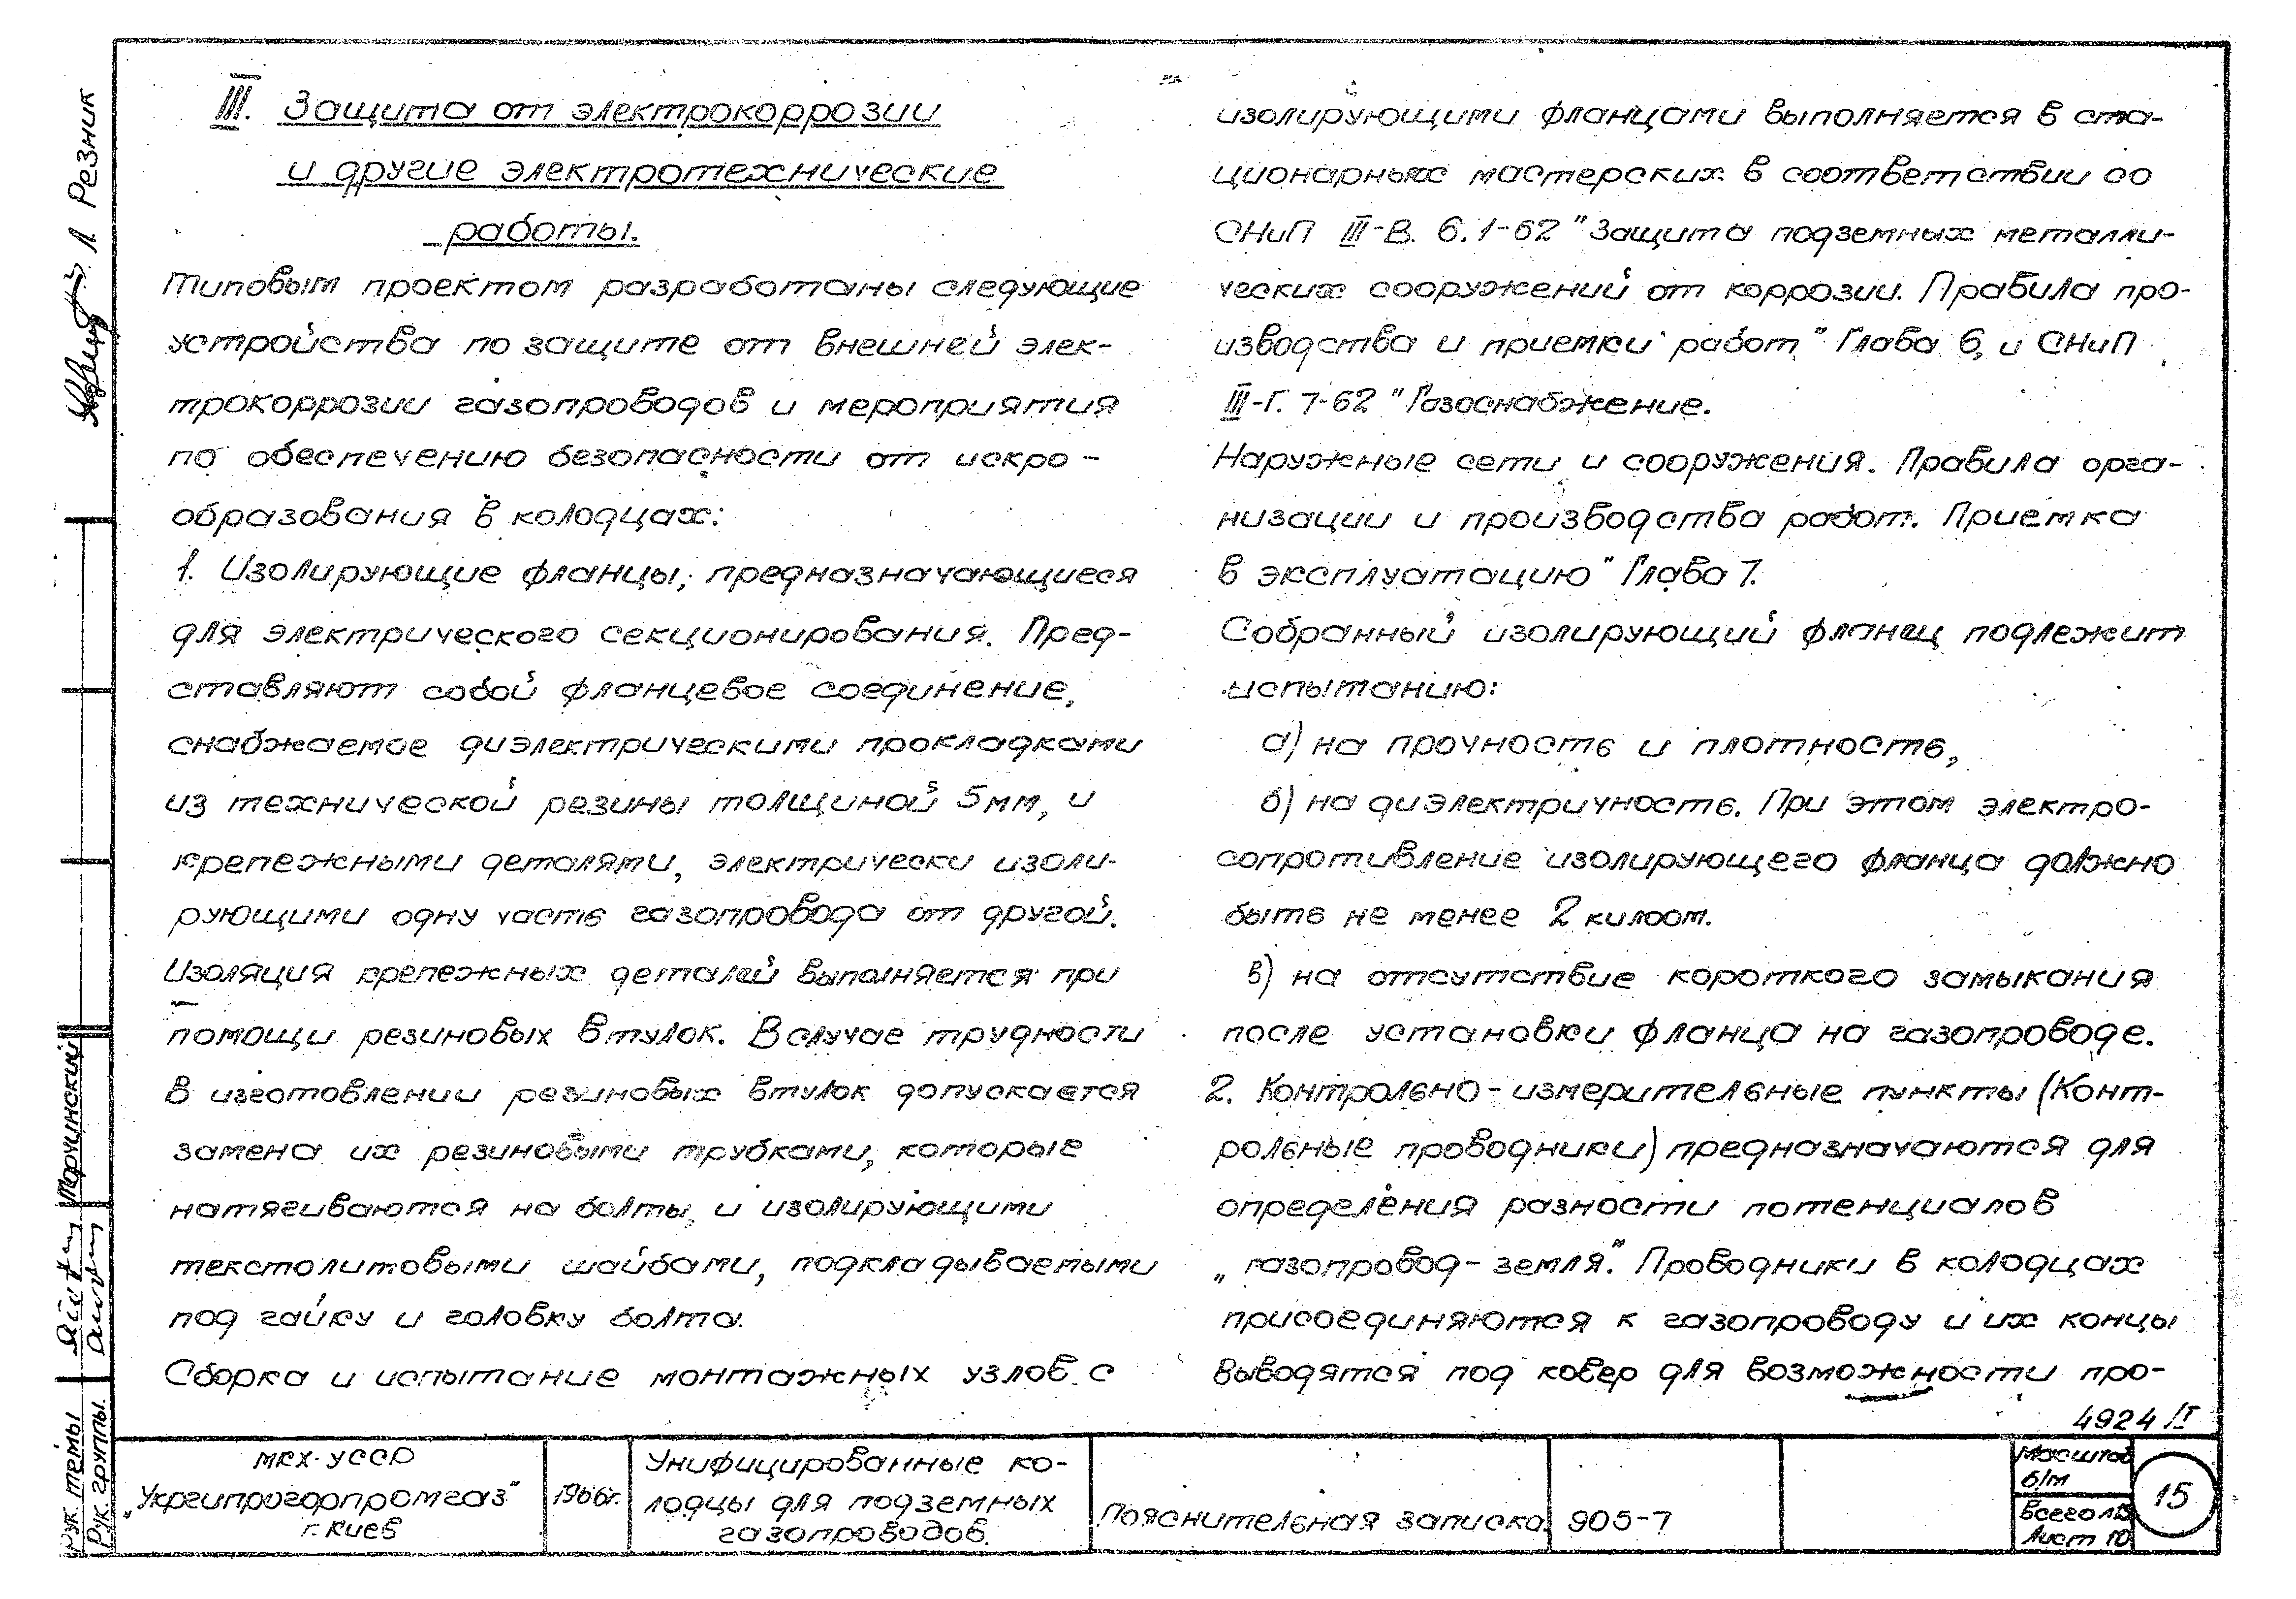 III. Защита от электрокоррозии
и другие электротехнические
работы.
Типовым проектом разработаны следующие
устройства по защите от внешней элек-
трокоррозии газопроводов и мероприятия
по обеспечению безопасности от искро-
образования в колодцах:
1. Изолирующие фланцы, предназначающиеся
для электрического секционирования. Пред-
ставляют собой фланцевое соединение,
снабжаемое диэлектрическими прокладками
из технической резины толщиной 5мм, и
крепежными деталями, электрически изоли-
рующими одну часть газопровода от другой.
Изоляция крепежных деталей выполняется при
помощи резиновых втулок. В случае трудности
в изготовлении резиновых втулок допускается
замена их резиновыми трубками, которые
натягиваются на болты, и изолирующими
текстолитовыми шайбами, подкладываемыми
под гайку и головку болта.
Сборка и испытание монтажных узлов с
изолирующими фланцами выполняется в ста-
ционарных мастерских в соответствии со
СНиП III-В. 6.1-62 "Защита подземных металли-
ческих сооружений от коррозии. Правила про-
изводства и приемки работ" Глава 6, и СНиП
III-Г. 7-62 "Газоснабжение.
Наружные сети и сооружения. Правила орга-
низации и производства работ. Приемка
в эксплуатацию" Глава 7.
Собранный изолирующий фланец подлежит
испытанию:
а) на прочность и плотность,
б) на диэлектричность. При этом электро-
сопротивление изолирующего фланца должно
быть не менее 2 килоом.
в) на отсутствие короткого замыкания
после установки фланца на газопроводе.
2. Контрольно-измерительные пункты (Конт-
рольные проводники) предназначаются для
определения разности потенциалов
„газопровод-земля". Проводники в колодцах
присоединяются к газопроводу и их концы
выводятся под ковер для возможности про-
4924/I
МКХ·УССР
„Укргипрогорпромгаз"
г. Киев
1966г.
Унифицированные ко-
лодцы для подземных
газопроводов.
Пояснительная записка.
905-7
Масштаб
б/м
Всего л.13
Лист 10
15
Л. Резник
Рук. темы
Рук. группы.